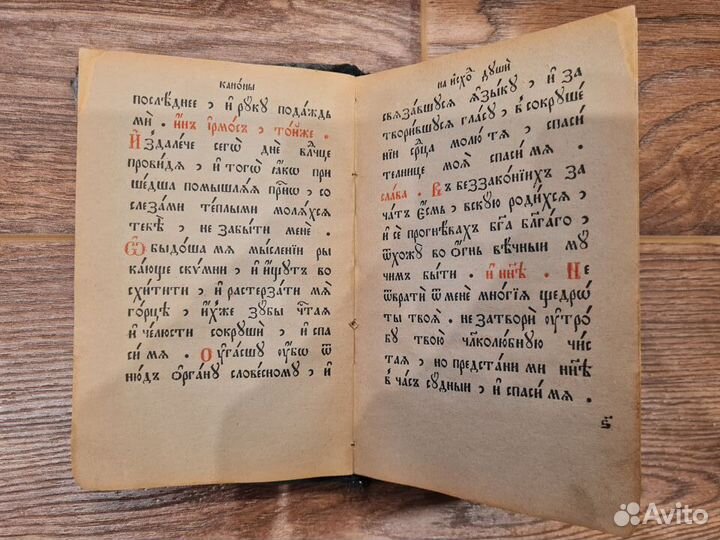 кано́ны
послѣ́днее, и҆ рꙋ́кꙋ пода́ждь
мѝ. и҆́нъ і҆рмо́съ, то́йже.
И҆здале́че сего̀ днѐ влⷣчце
прови́дѧ, и҆ того̀ ꙗ҆́кѡ при
ше́дша помышлѧ́ѧ при́снѡ, со
слеза́ми те́плыми молѧ́хсѧ
тебѣ̀, не забы́ти менѐ.
Ѡ҆быдо́ша мѧ мы́сленїи ры
ка́юще ску́мни, и҆ и҆́щꙋтъ во
схити́ти, и҆ растерза́ти мѧ
го́рцѣ, и҆́хже зꙋ́бы чⷭ҇таѧ
и҆ че́люсти сокрꙋшѝ, и҆ спа
си́ мѧ. Оу҆га́сшꙋ ᲂу҆́бѡ ѿ
ню́дъ ѻ҆рга́нꙋ слове́сномꙋ, и҆
на и҆схо́дъ дꙋшѝ
свѧза́вшꙋсѧ ꙗ҆зы́кꙋ, и҆ за
твори́вшꙋсѧ гла́сꙋ, в̾ сокрꙋше́
нїи срⷣца молю́ тѧ, спаси́
телнице моѧ̀ спаси́ мѧ.
сла́ва. Въ беззако́нїихъ за
ча́тъ є҆́смь, вскꙋ́ю роди́хсѧ,
и҆ сѐ прогнѣ́вахъ бг҃а бл҃га́го,
ѿхо́жꙋ во ѻ҆́гнь вѣ́чный мꙋ́
чимъ бы́ти. и҆ ны́нѣ. Не
ѿвратѝ ѿ менѐ мно́гїѧ щедрѡ́
ты твоѧ̀. не затворѝ ᲂу҆тро́
бꙋ твою̀ чл҃колю́бнꙋю чи́с
таѧ, но предста́ни ми ны́нѣ
в̾ ча́съ сꙋ́дный, и҆ спаси́ мѧ.
Avito